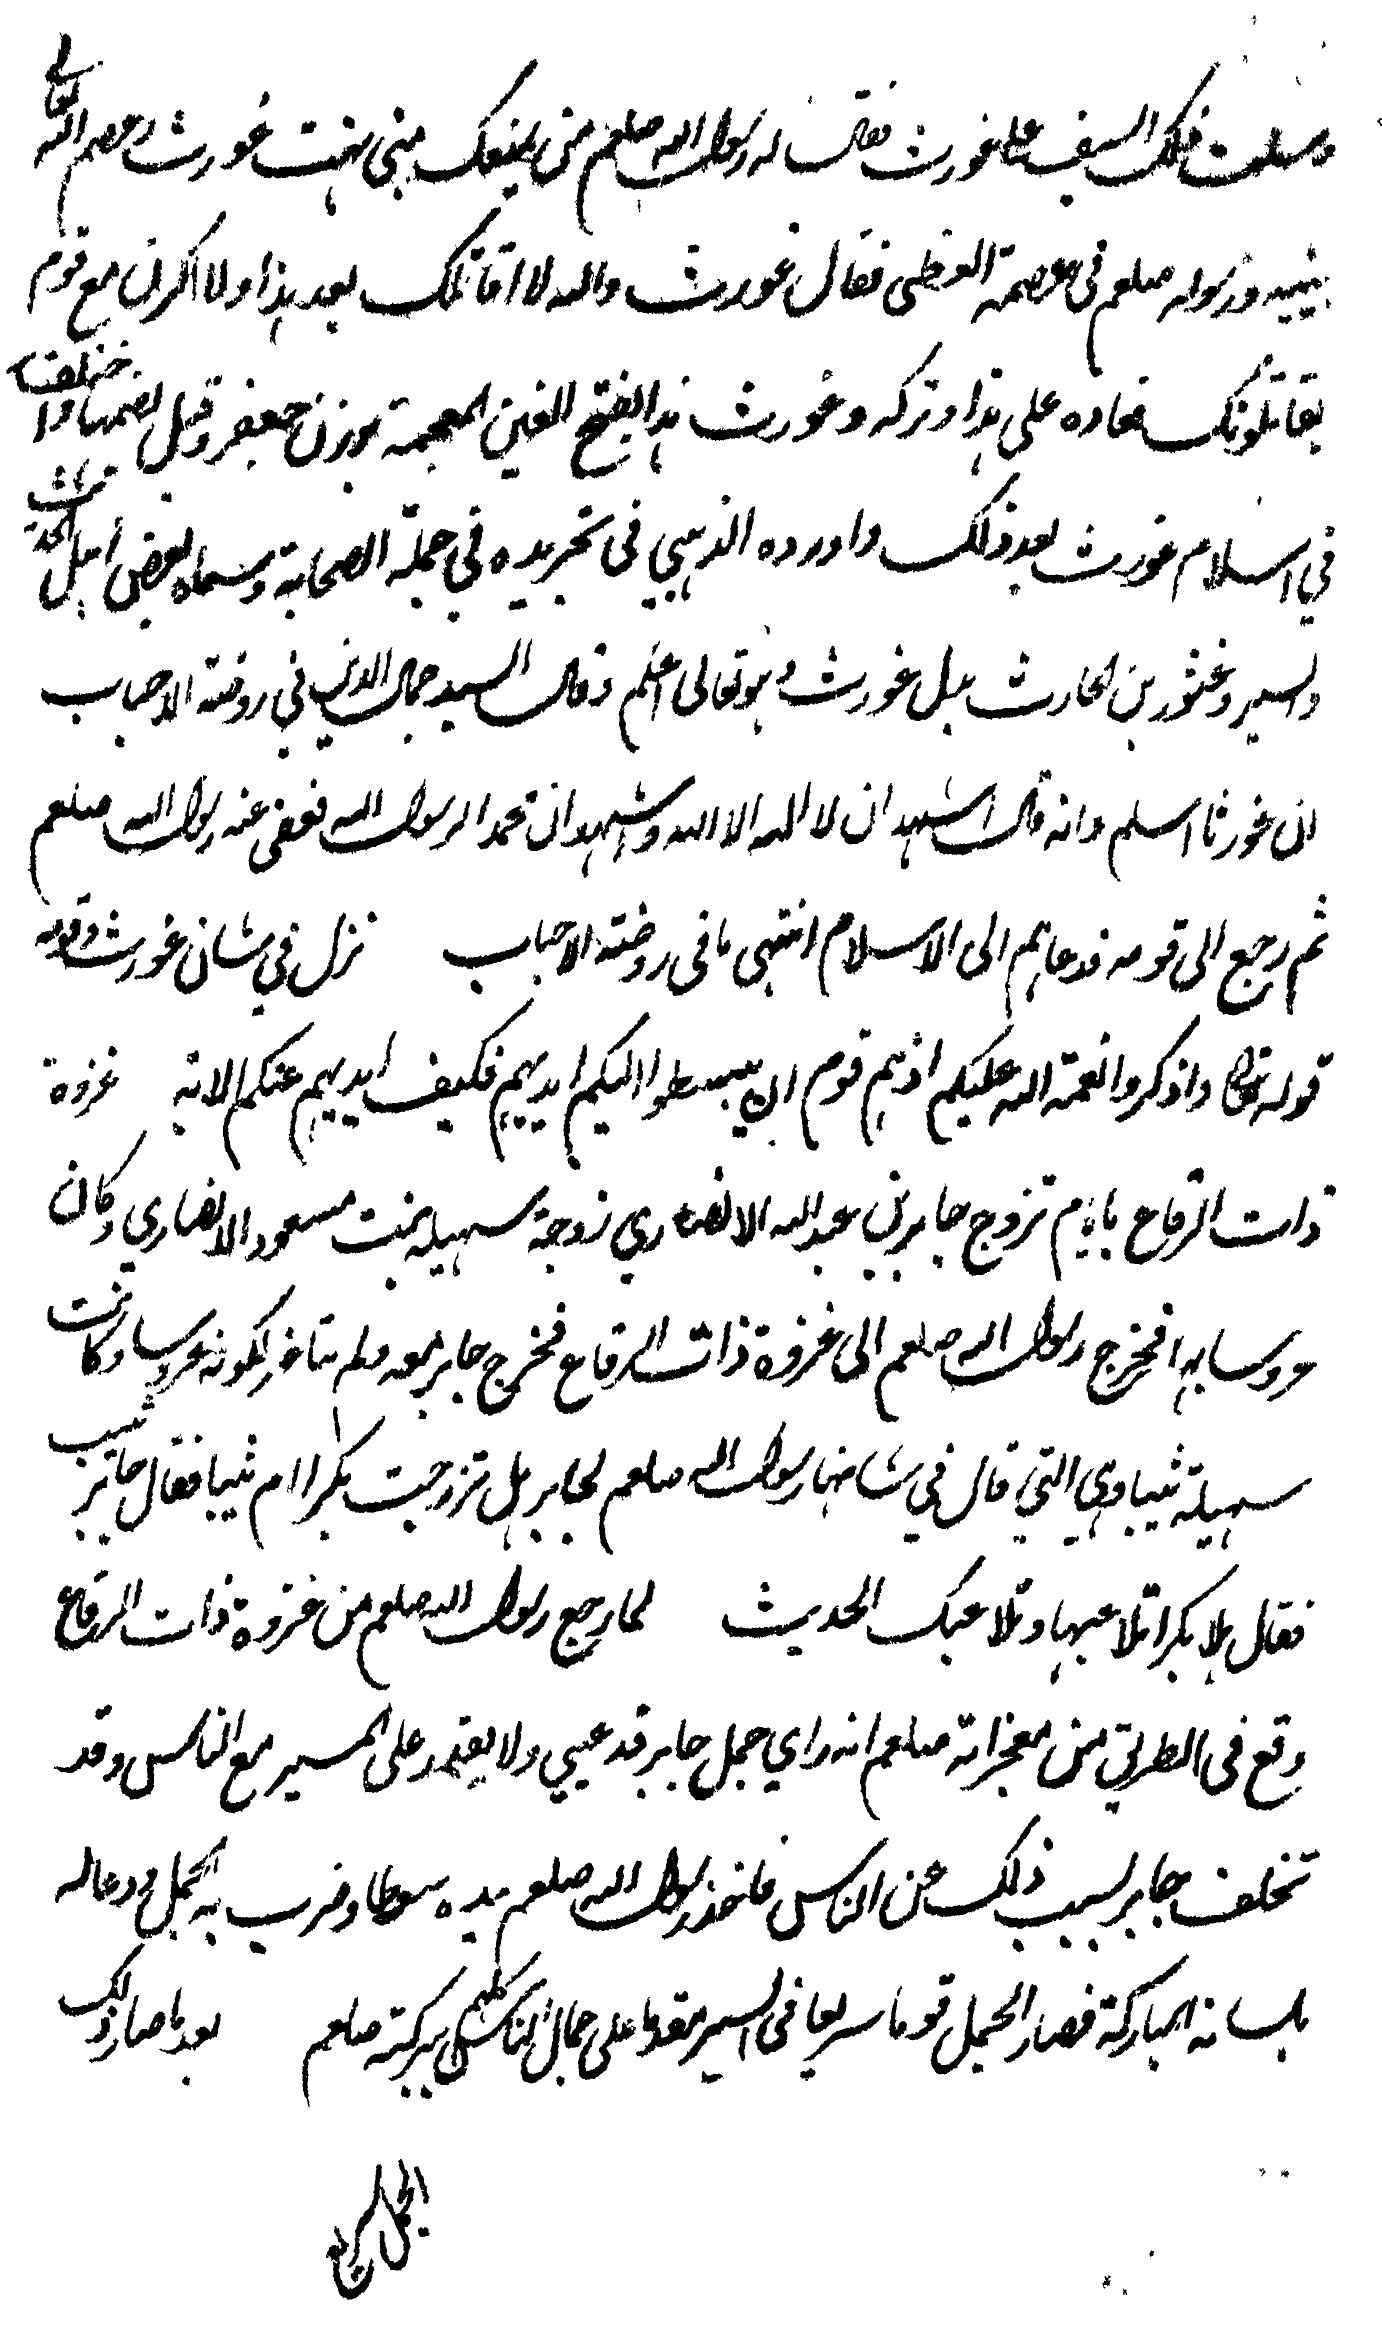 وسلت ذلك السيف على غورث فقال له رسول الله صلعم من يمنعك مني بهت غورث وعصم الله تعالى
نبيه ورسوله صلعم في عصمة العظمى فقال غورث والله لا اقاتلك بعد هذا ولا اكون مع قوم
يقاتلونك فعاده على هذا وتركه وغورث هذا بفتح الغين المعجمة بوزن جعفر وقيل بضمها واختلف
في اسلام غورث بعد ذلك واورده الذهبي في تجريده في جملة الصحابة وسماه بعض اهل الحديث
والسير وغثور بن الحارث بدل غورث وهو تعالى اعلم وقال السيد جمال الدين في روضة الاحباب
ان غورثا اسلم وانه قال اشهد ان لا اله الا الله واشهد ان محمدا رسول الله فعفى عنه رسول الله صلعم
ثم رجع الى قومه فدعاهم الى الاسلام انتهى ما في روضة الاحباب نزل في شان غورث وقومه
قوله تعالى واذكروا نعمة الله عليكم اذ هم قوم ان يبسطوا اليكم ايديهم فكف ايديهم عنكم الاية غزوة
ذات الرقاع بايام تزوج جابر بن عبد الله الانصاري زوجة سهيله بنت مسعود الانصاري وكان
عروسا بها فخرج رسول الله صلعم الى غزوة ذات الرقاع فخرج جابر معه ولم يتاخر لكونه عروسا وكانت
سهيلة ثيبا وهي التي قال في شانها رسول الله صلعم لجابر هل تزوجت بكرا ام ثيبا فقال جابر ثيب
فقال هلا بكرا تلاعبها وتلاعبك الحديث لما رجع رسول الله صلعم من غزوة ذات الرقاع
وقع في الطريق من معجزاته صلعم انه راي جمل جابر قد عيي ولا يقدر على المسير مع الناس وقد
تخلف جابر بسبب ذلك عن الناس فاخذ رسول الله صلعم بيده سوطا وضرب به الجمل ودعا له
بلسانه المباركة فصار الجمل قويا سريعا في السير مقدما على جمال الناس كلهم ببركته صلعم بعد ما صار ذلك
الجمل سريع